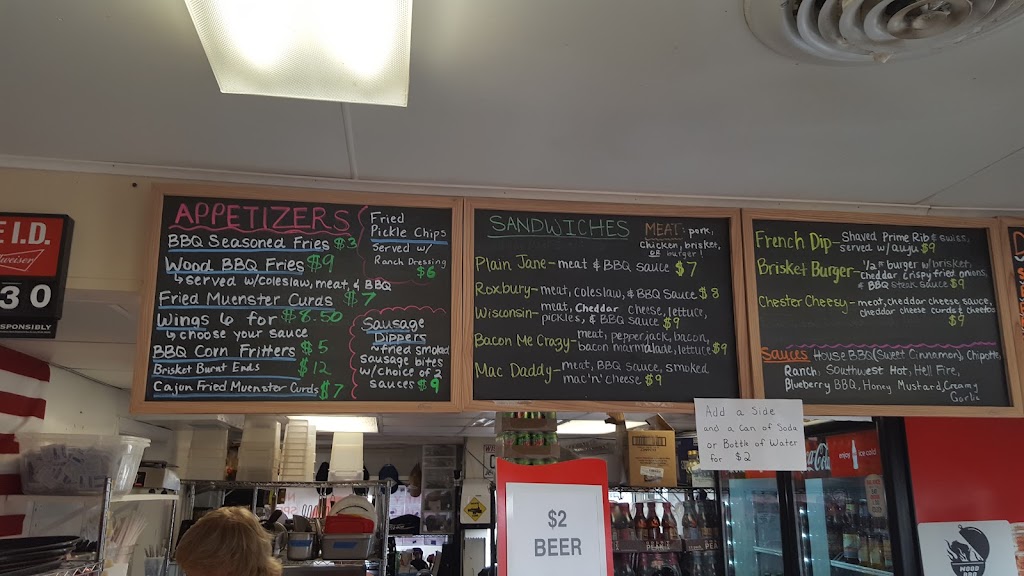 E I.D.
Budweiser
30
SPONSIBLY
APPETIZERS
BBQ Seasoned Fries $3
Wood BBQ Fries $9
↳ served w/coleslaw, meat, & BBQ
Fried Muenster Curds $7
Wings 6 for $8.50
↳ choose your sauce
BBQ Corn Fritters $5
Brisket Burnt Ends $12
Cajun Fried Muenster Curds $7
Fried
Pickle Chips
Served w/
Ranch Dressing
$6
Sausage
Dippers
~fried smoked
sausage bites
w/choice of 2
sauces $9
SANDWICHES
MEAT: pork,
chicken, brisket,
or burger!
Plain Jane- meat & BBQ sauce $7
Roxbury- meat, coleslaw, & BBQ Sauce $8
Wisconsin- meat, cheddar cheese, lettuce,
pickles, & BBQ sauce $9
Bacon Me Crazy- meat, pepperjack, bacon,
bacon marmalade, lettuce $9
Mac Daddy- meat, BBQ sauce, smoked
mac'n'cheese $9
French Dip- Shaved Prime Rib & swiss,
served w/aujus $9
Brisket Burger- 1/2 # burger w/brisket,
cheddar, crispy fried onions,
& BBQ steak sauce $9
Chester Cheesy- meat, cheddar cheese sauce,
cheddar cheese curds & cheetos
$9
Sauces House BBQ (Sweet Cinnamon), Chipotle,
Ranch, Southwest Hot, Hell Fire,
Blueberry BBQ, Honey Mustard, Creamy
Garlic
Add a Side
and a Can of Soda
or Bottle of Water
for $2
$2
BEER
Coca-Cola
enjoy
ice cold
WOOD
BBQ